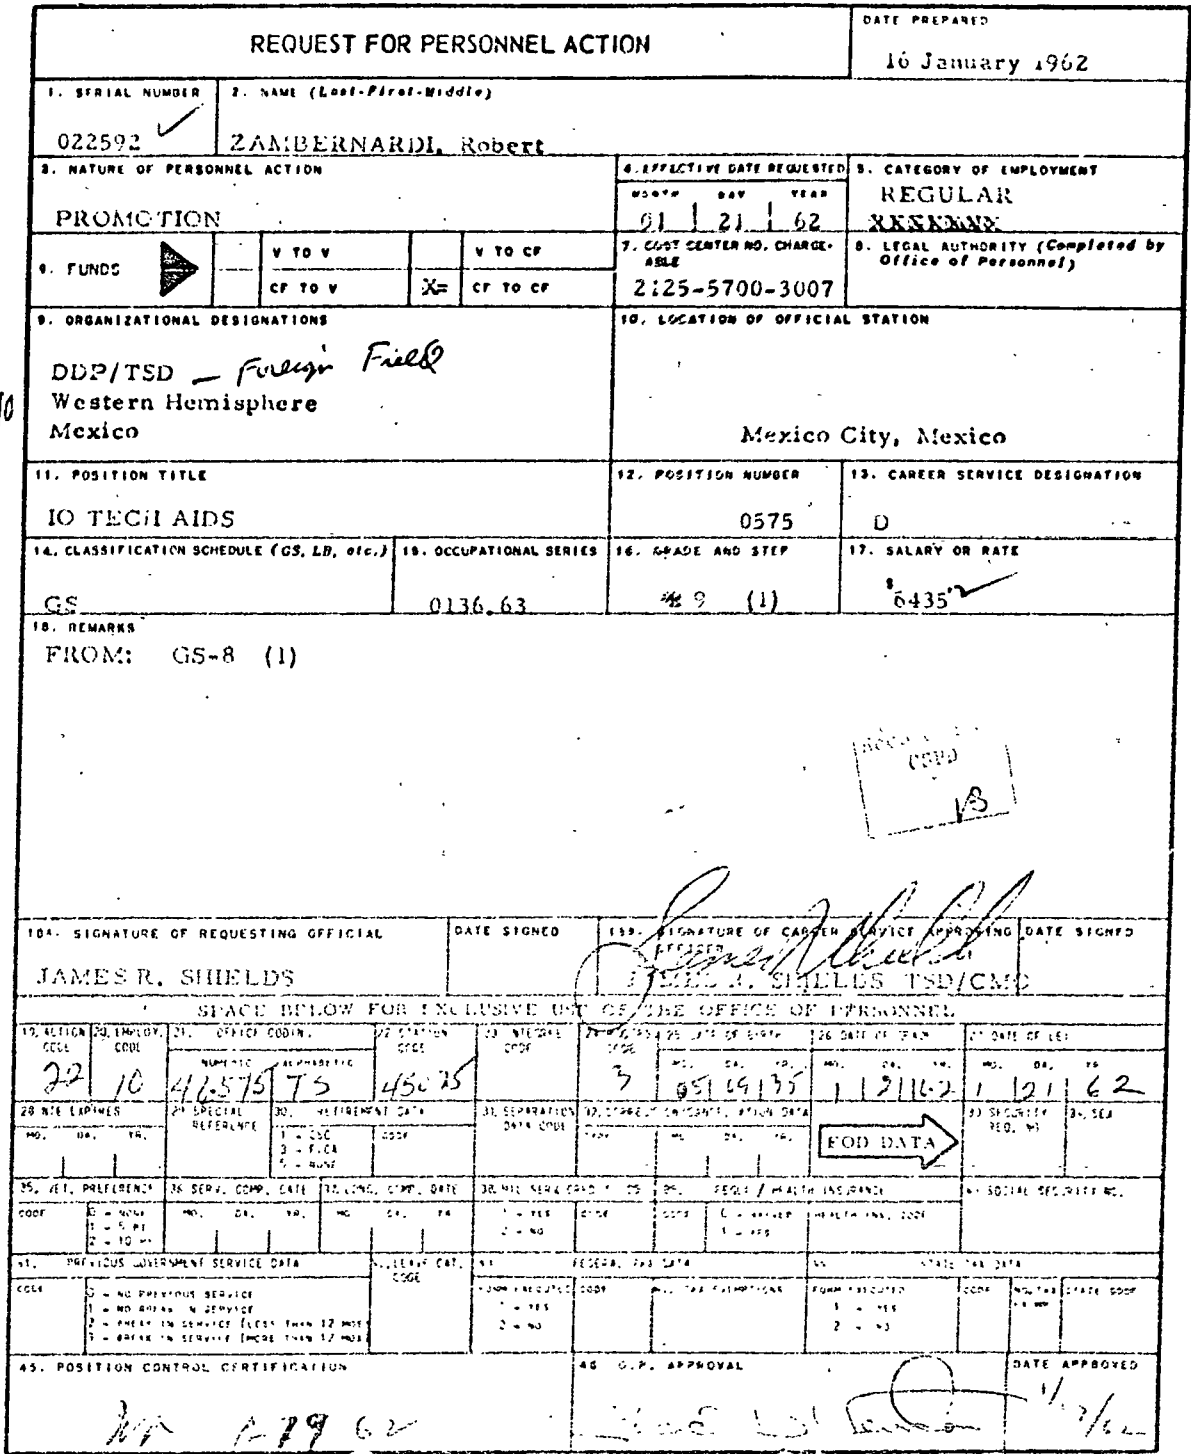 REQUEST FOR PERSONNEL ACTION
DATE PREPARED
16 January 1962
1. SERIAL NUMBER
022592
2. NAME (Last-First-Middle)
ZAMBERNARDI, Robert
3. NATURE OF PERSONNEL ACTION
PROMOTION
4. EFFECTIVE DATE REQUESTED
MONTH DAY YEAR
01 21 62
5. CATEGORY OF EMPLOYMENT
REGULAR
FUNDS
V TO V
V TO CF
CF TO V
X= CF TO CF
7. COST CENTER NO. CHARGE-
ABLE
2125-5700-3007
8. LEGAL AUTHORITY (Completed by
Office of Personnel)
9. ORGANIZATIONAL DESIGNATIONS
DDP/TSD – Foreign Field
Western Hemisphere
Mexico
10. LOCATION OF OFFICIAL STATION
Mexico City, Mexico
11. POSITION TITLE
IO TECH AIDS
12. POSITION NUMBER
0575
13. CAREER SERVICE DESIGNATION
D
14. CLASSIFICATION SCHEDULE (GS, LB, etc.)
GS
15. OCCUPATIONAL SERIES
0136.63
16. GRADE AND STEP
9 (1)
17. SALARY OR RATE
$ 6435
18. REMARKS
FROM: GS-8 (1)
CSPD
18A. SIGNATURE OF REQUESTING OFFICIAL
DATE SIGNED
JAMES R. SHIELDS
18B. SIGNATURE OF CAREER SERVICE APPROVING
OFFICER
DATE SIGNED
JAMES R. SHIELDS TSD/CMO
SPACE BELOW FOR EXCLUSIVE USE OF THE OFFICE OF PERSONNEL
19. ACTION
CODE
22
20. EMPLOY.
CODE
10
21. OFFICE CODING
NUMERIC ALPHABETIC
46575 TS
22. STATION
CODE
45075
23. INTEGREE
CODE
CODE
3
25. DATE OF BIRTH
MO. DA. YR.
05 09 35
26. DATE OF GRADE
MO. DA. YR.
1 21 62
27. DATE OF LEI
MO. DA. YR.
1 21 62
28. NTE EXPIRES
MO. DA. YR.
29. SPECIAL
REFERENCE
30. RETIREMENT DATA
1 - CSC
3 - FICA
5 - NONE
CODE
31. SEPARATION
DATA CODE
32. CORRECTION/CANCELLATION DATA
TYPE MO. DA. YR.
EOD DATA
33. SECURITY
REQ. NO.
34. SEX
35. VET. PREFERENCE
CODE
0 - NONE
1 - 5 PT
2 - 10 PT
36. SERV. COMP. DATE
MO. DA. YR.
37. LONG. COMP. DATE
MO. DA. YR.
1 - YES
2 - NO
CODE
39. FEGLI / HEALTH INSURANCE
CODE
0 - WAIVER
1 - YES
HEALTH INS. CODE
40. SOCIAL SECURITY NO.
41. PREVIOUS GOVERNMENT SERVICE DATA
CODE
0 - NO PREVIOUS SERVICE
1 - NO BREAK IN SERVICE
2 - BREAK IN SERVICE (LESS THAN 12 MOS)
3 - BREAK IN SERVICE (MORE THAN 12 MOS)
42. LEAVE CAT.
CODE
43. FEDERAL TAX DATA
FORM EXECUTED
1 - YES
2 - NO
CODE
NO. TAX EXEMPTIONS
44. STATE TAX DATA
FORM EXECUTED
1 - YES
2 - NO
CODE
STATE CODE
45. POSITION CONTROL CERTIFICATION
46. O.P. APPROVAL
DATE APPROVED